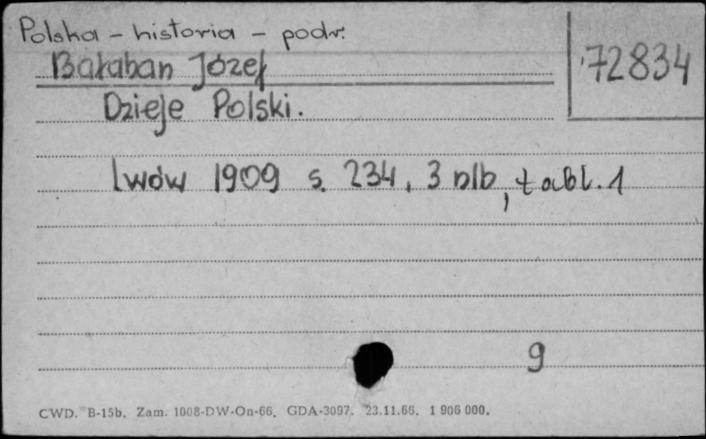 Polska - historia - podr.
72834
Bałaban Józef
Dzieje Polski.
Lwów 1909 s. 234, 3 nlb, tabl. 1
9
CWD. B-15b. Zam. 1008-DW-On-66. GDA-3097. 23.11.66. 1 906 000.